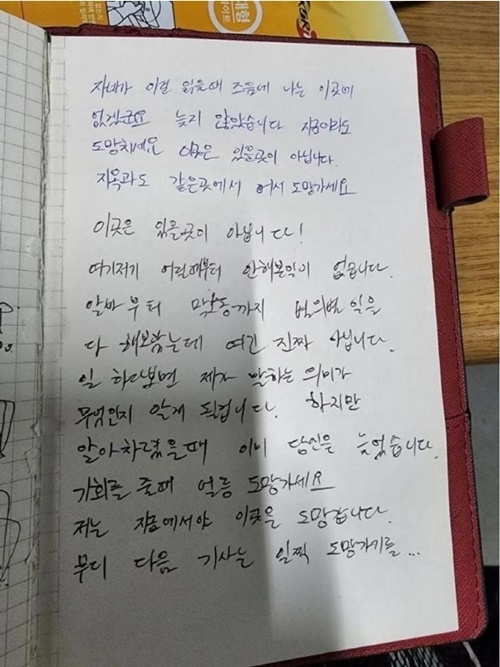 자네가 이걸 읽을때 즈음에 나는 이곳에
없겠군요 늦지 않았습니다 지금이라도
도망치세요 이곳은 있을곳이 아닙니다.
지옥과도 같은곳에서 어서 도망가세요
이곳은 있을곳이 아닙니다!
여기저기 어릴때부터 안해본일이 없습니다.
알바부터 막노동까지 별의별 일은
다 해보았는데 여긴 진짜 아닙니다.
일 하다보면 제가 말하는 의미가
무엇인지 알게 될겁니다. 하지만
알아차렸을때 이미 당신은 늦었습니다.
기회를 줄때 얼릉 도망가세요
저는 지금에서야 이곳을 도망갑니다.
부디 다음 기사는 일찍 도망가기를...